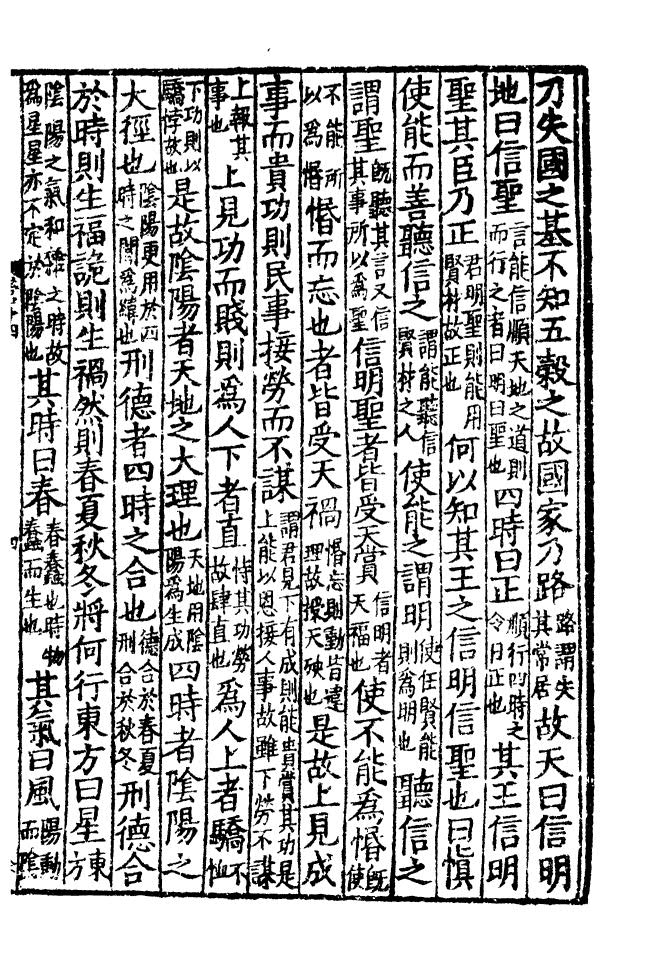 刀失國之基不知五穀之故國家乃路路謂失其常居故天曰信明
地曰信聖言能信順天地之道則而行之者曰明曰聖也四時曰正順行四時之令曰正也其王信明
聖其臣乃正君明聖則能用賢材故正也何以知其王之信明信聖也曰慎
使能而善聽信之謂能聽信賢材之人使能之謂明使任賢能則為明也聽信之
謂聖既聽其言又信其事所以為聖信明聖者皆受天賞信明者天福也使不能為惛既使
不能所以為惛惛而忘也者皆受天禍惛忘則動皆違理故天殃也是故上見成
事而貴功則民事接勞而不謀謂君見下有成則能貴賞其功是上能以恩接人事故雖下勞不謀
上報其事也上見功而賤則為人下者直恃其功勞故肆直也為人上者驕不恤
下功則以驕悖故也是故陰陽者天地之大理也天地用陰陽為生成四時者陰陽之
大徑也陰陽更用於四時之間為緯也刑德者四時之合也德合於春夏刑合於秋冬刑德合
於時則生福詭則生禍然則春夏秋冬將何行東方曰星東方
陰陽之氣和雜之時故為星星亦不定於陰陽也其時曰春春蠢也時物蠢而生也其氣曰風陽動而陰